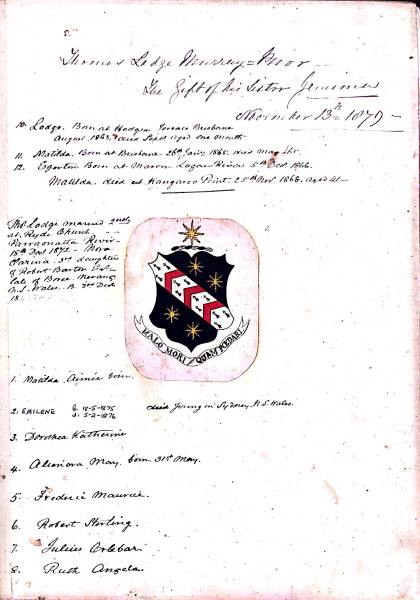 Thomas Lodge Murray=Prior
The Gift of his Sister Jemima
November 13th 1879
10. Lodge. Born at Hodgson Terrace Brisbane
August 1863. died Sept. aged one month
11. Matilda. Born at Brisbane 26th Jany. 1865. died
12. Egerton Born at Maroon Logan River 5th Oct 1866.
Matilda died at Kangaroo Point. 25th Nov. 1868. aged 41
Thos Lodge married 2ndly
at Ryde Church
Parramatta River
18th Decr 1872 Nora
Clarina 3rd daughter
of Robert Barton Esq
late of Boree Nerang
N.S. Wales. B. 3rd Decr
18
MALO MORI QUAM FOEDARI
1. Matilda Aimée born.
2. EMILENE b. 18-5-1875 died young in Sydney. N.S. Wales.
d. 5-2-1876
3. Dorothea Katherine
4. Alienora May. born 31st May.
5 Frederic Maurice.
6 Robert Sterling.
7. Julius Orlebar.
8. Ruth Angela.